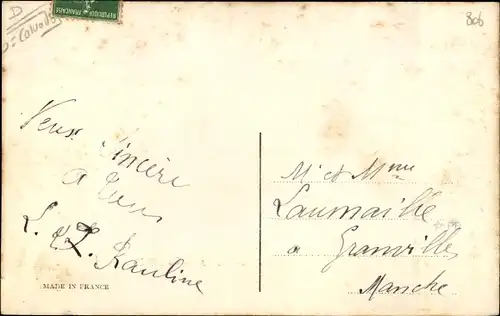 D
= Calvados
REPUBLIQUE FRANCAISE
Veux Sincère
a tous
L. et L. Rauline
MADE IN FRANCE
Mr et Mme
Laumaille
a Granville
Manche